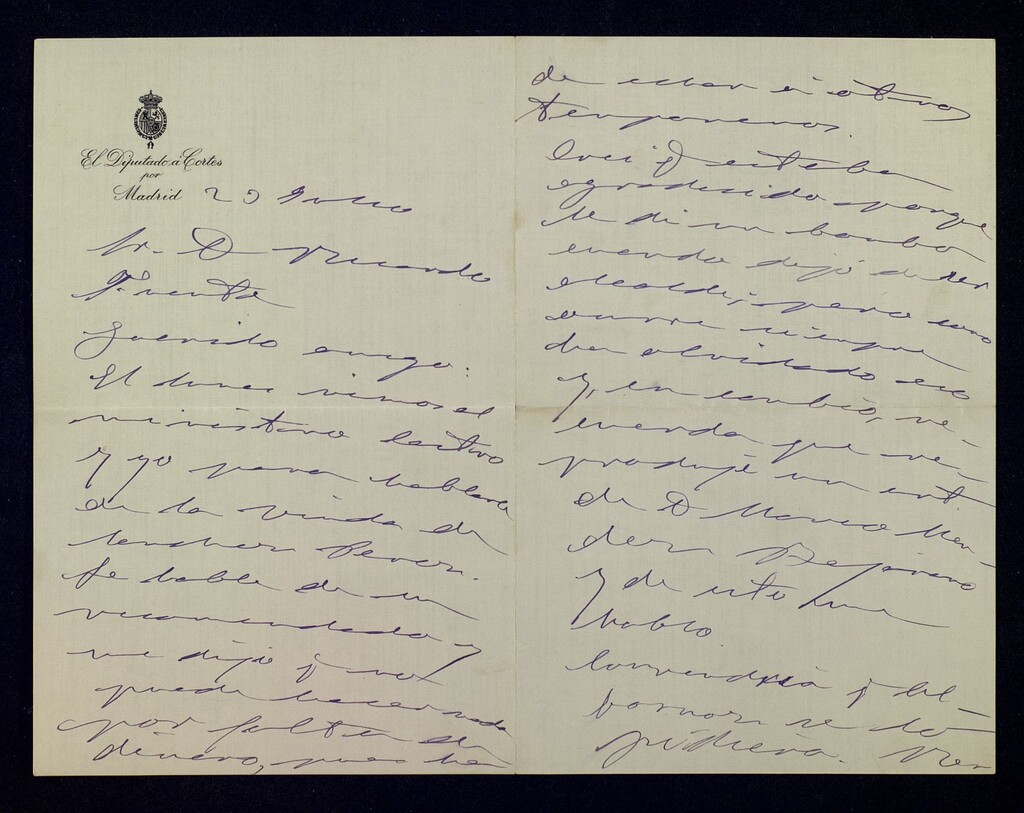 El Diputado á Cortes
por
Madrid
23 Julio
Sr. D Ricardo
Fuente
Querido amigo:
El lunes vimos al
ministro Castro
y yo para hablarle
de la viuda de
Sanchez Perez.
Le hablé de un
recomendado y
me dijo q no
puede hacer nada
por falta de
dinero, pues ha
de echar á otros
temporeros.
Creí q estaba
agradecido porque
le di un bombo
cuando dejó de ser
alcalde, pero como
ocurre siempre
ha olvidado eso
y, en cambio, re-
cuerda que re-
produje un art
de D Mario Men
dez Bejarano
y de esto me
habló.
Convendría q
se lo
pidiera.